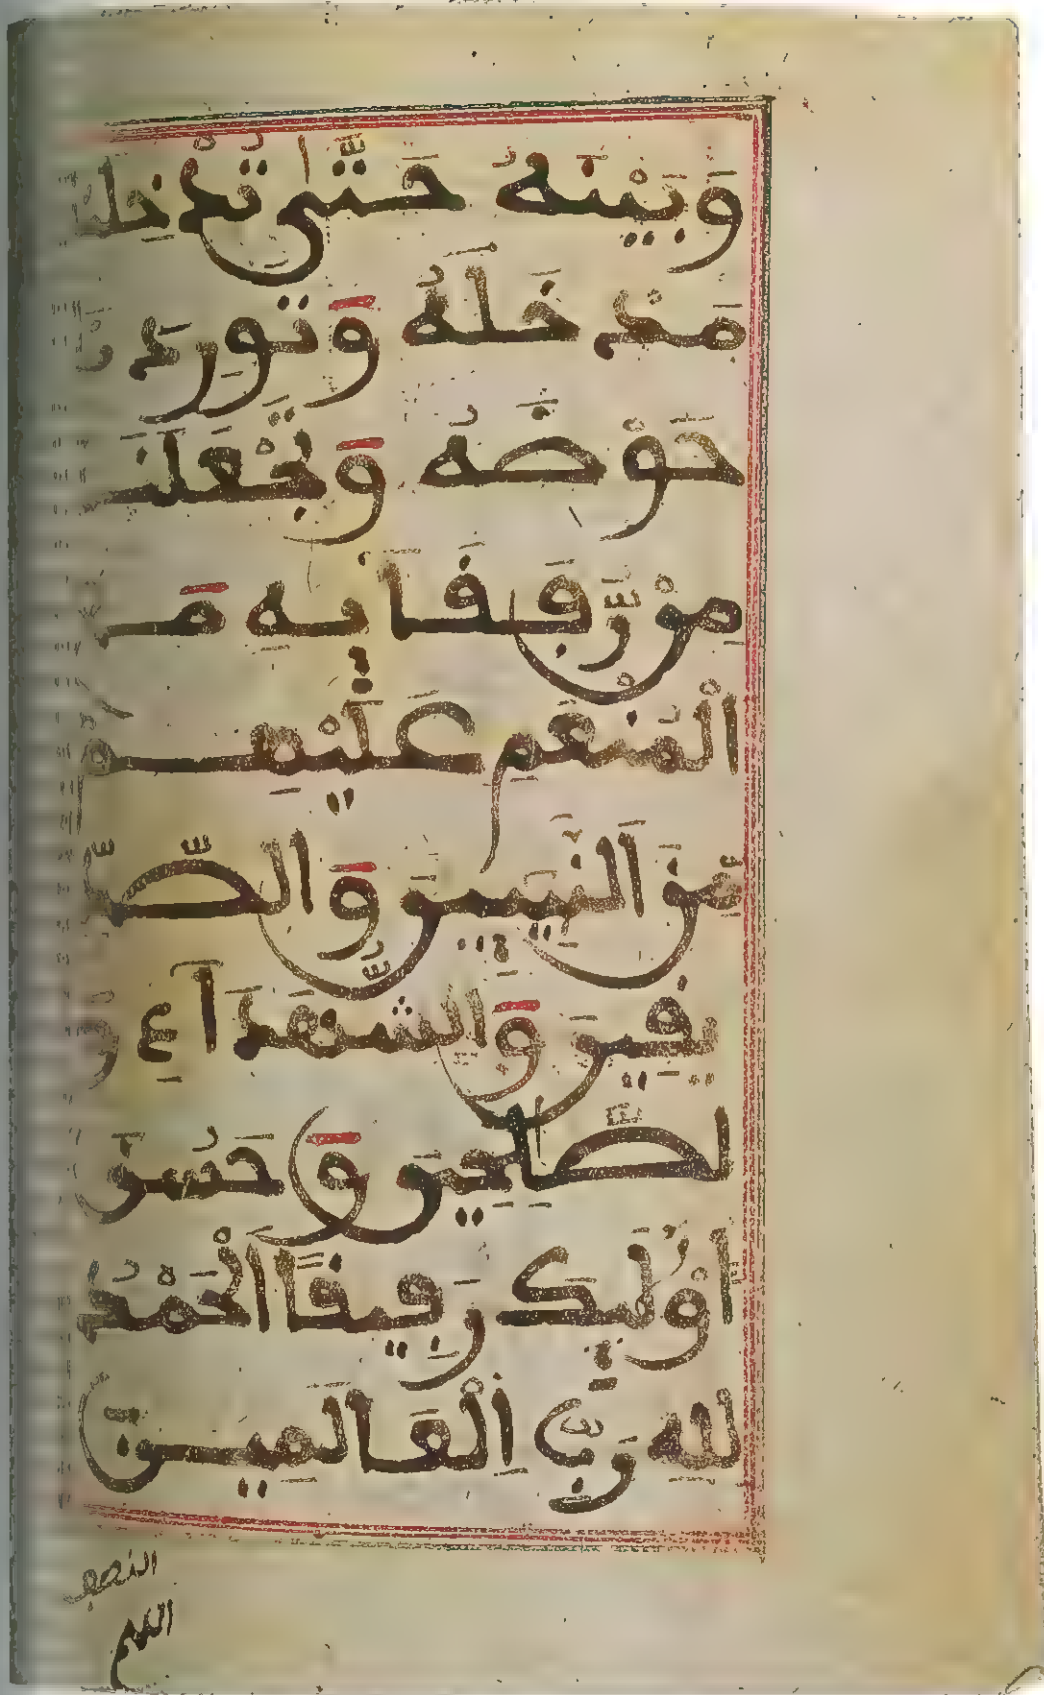 وَبَيْنَهُ حَتَّى تُدْخِلَنَا
مَدْخَلَهُ وَتُورِدَنَا
حَوْضَهُ وَتَجْعَلَنَا
مِنْ رُّفَقَائِهِ مَعَ
الْمُنْعَمِ عَلَيْهِم
مِّنَ النَّبِيِّينَ وَالصِّدِّ
يقِينَ وَالشُّهَدَآءِ وَا
لصَّلِحِينَ وَحَسُنَ
أُوْلَئِكَ رَفِيقًا اَلْحَمْدُ
لِلهِ رَبِّ اِلْعَالَمِينَ
النصف
اللهم